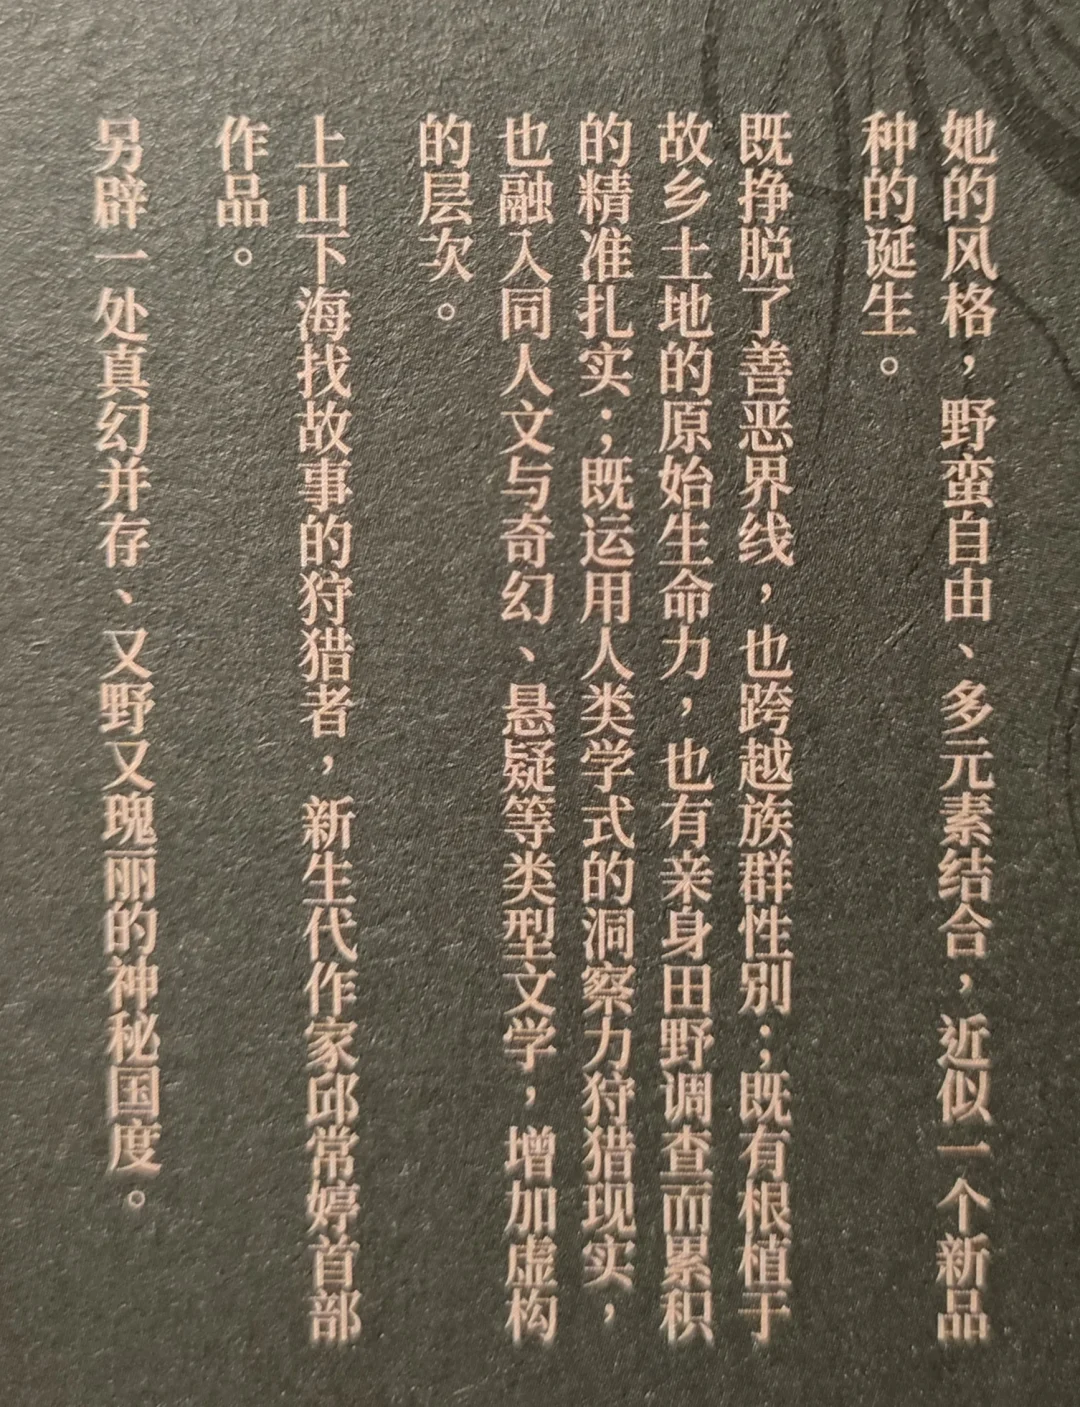 她的风格，野蛮自由、多元素结合，近似一个新品
种的诞生。
既挣脱了善恶界线，也跨越族群性别；既有根植于
故乡土地的原始生命力，也有亲身田野调查而累积
的精准扎实；既运用人类学式的洞察力狩猎现实，
也融入同人文与奇幻、悬疑等类型文学，增加虚构
的层次。
上山下海找故事的狩猎者，新生代作家邱常婷首部
作品。
另辟一处真幻并存、又野又瑰丽的神秘国度。